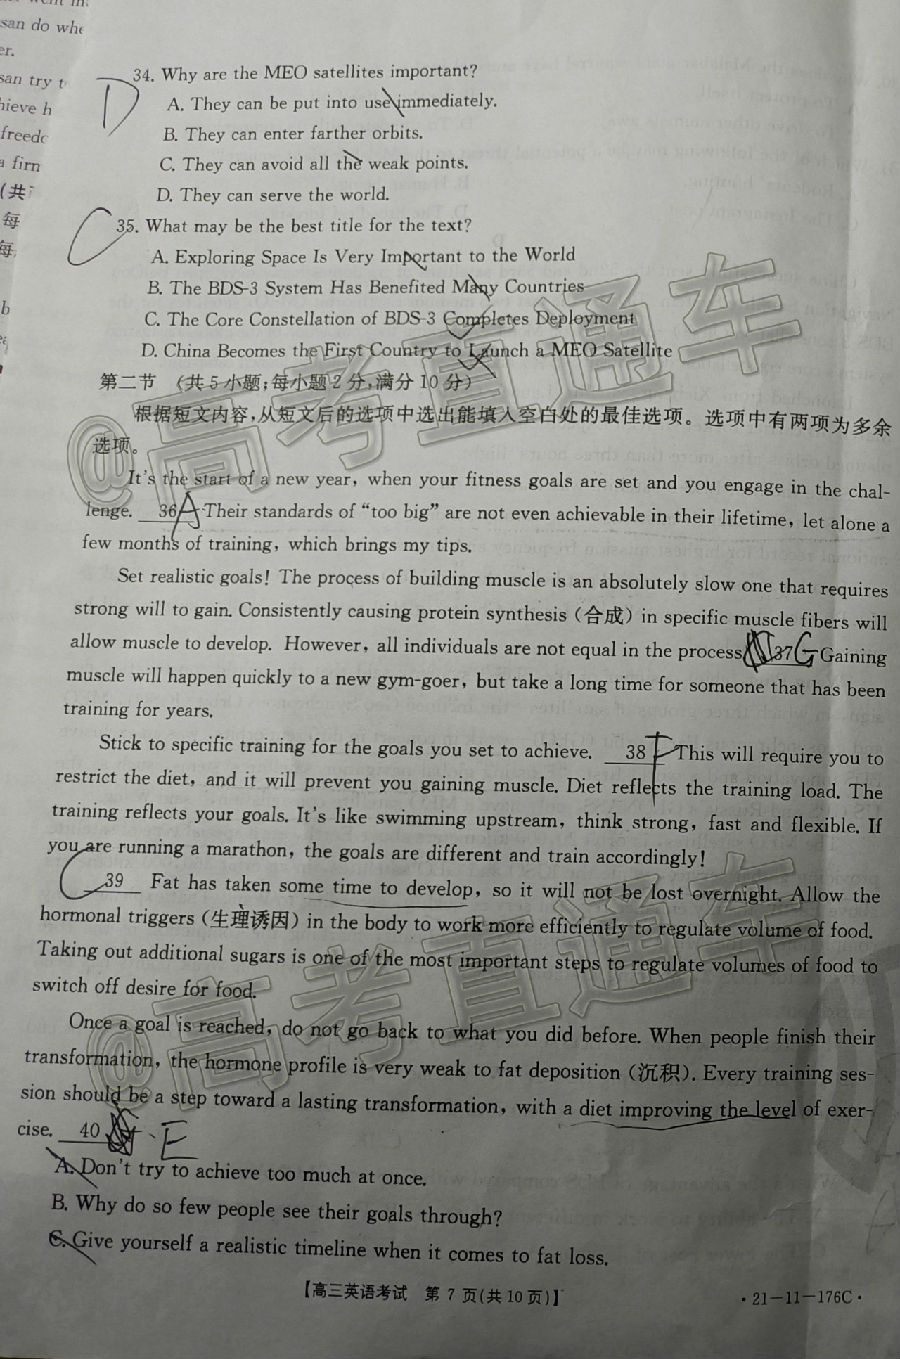 san do whe
er.
san try t
hieve h
freedo
a firn
(共
每
每
b
34. Why are the MEO satellites important?
D
A. They can be put into use immediately.
B. They can enter farther orbits.
C. They can avoid all the weak points.
D. They can serve the world.
C
35. What may be the best title for the text?
A. Exploring Space Is Very Important to the World
B. The BDS-3 System Has Benefited Many Countries
C. The Core Constellation of BDS-3 Completes Deployment
D. China Becomes the First Country to Launch a MEO Satellite
第二节 (共5小题;每小题2分,满分10分)
根据短文内容,从短文后的选项中选出能填入空白处的最佳选项。选项中有两项为多余
选项。
It's the start of a new year, when your fitness goals are set and you engage in the chal-
lenge. 36 A Their standards of "too big" are not even achievable in their lifetime, let alone a
few months of training, which brings my tips.
Set realistic goals! The process of building muscle is an absolutely slow one that requires
strong will to gain. Consistently causing protein synthesis (合成) in specific muscle fibers will
allow muscle to develop. However, all individuals are not equal in the process. 37 G Gaining
muscle will happen quickly to a new gym-goer, but take a long time for someone that has been
training for years.
Stick to specific training for the goals you set to achieve. 38 F This will require you to
restrict the diet, and it will prevent you gaining muscle. Diet reflects the training load. The
training reflects your goals. It's like swimming upstream, think strong, fast and flexible. If
you are running a marathon, the goals are different and train accordingly!
C 39 Fat has taken some time to develop, so it will not be lost overnight. Allow the
hormonal triggers (生理诱因) in the body to work more efficiently to regulate volume of food.
Taking out additional sugars is one of the most important steps to regulate volumes of food to
switch off desire for food.
Once a goal is reached, do not go back to what you did before. When people finish their
transformation, the hormone profile is very weak to fat deposition (沉积). Every training ses-
sion should be a step toward a lasting transformation, with a diet improving the level of exer-
cise. 40 E
A. Don't try to achieve too much at once.
B. Why do so few people see their goals through?
C. Give yourself a realistic timeline when it comes to fat loss.
【高三英语考试 第7页(共10页)】
·21-11-176C·
@高考直通车
@高考直通车